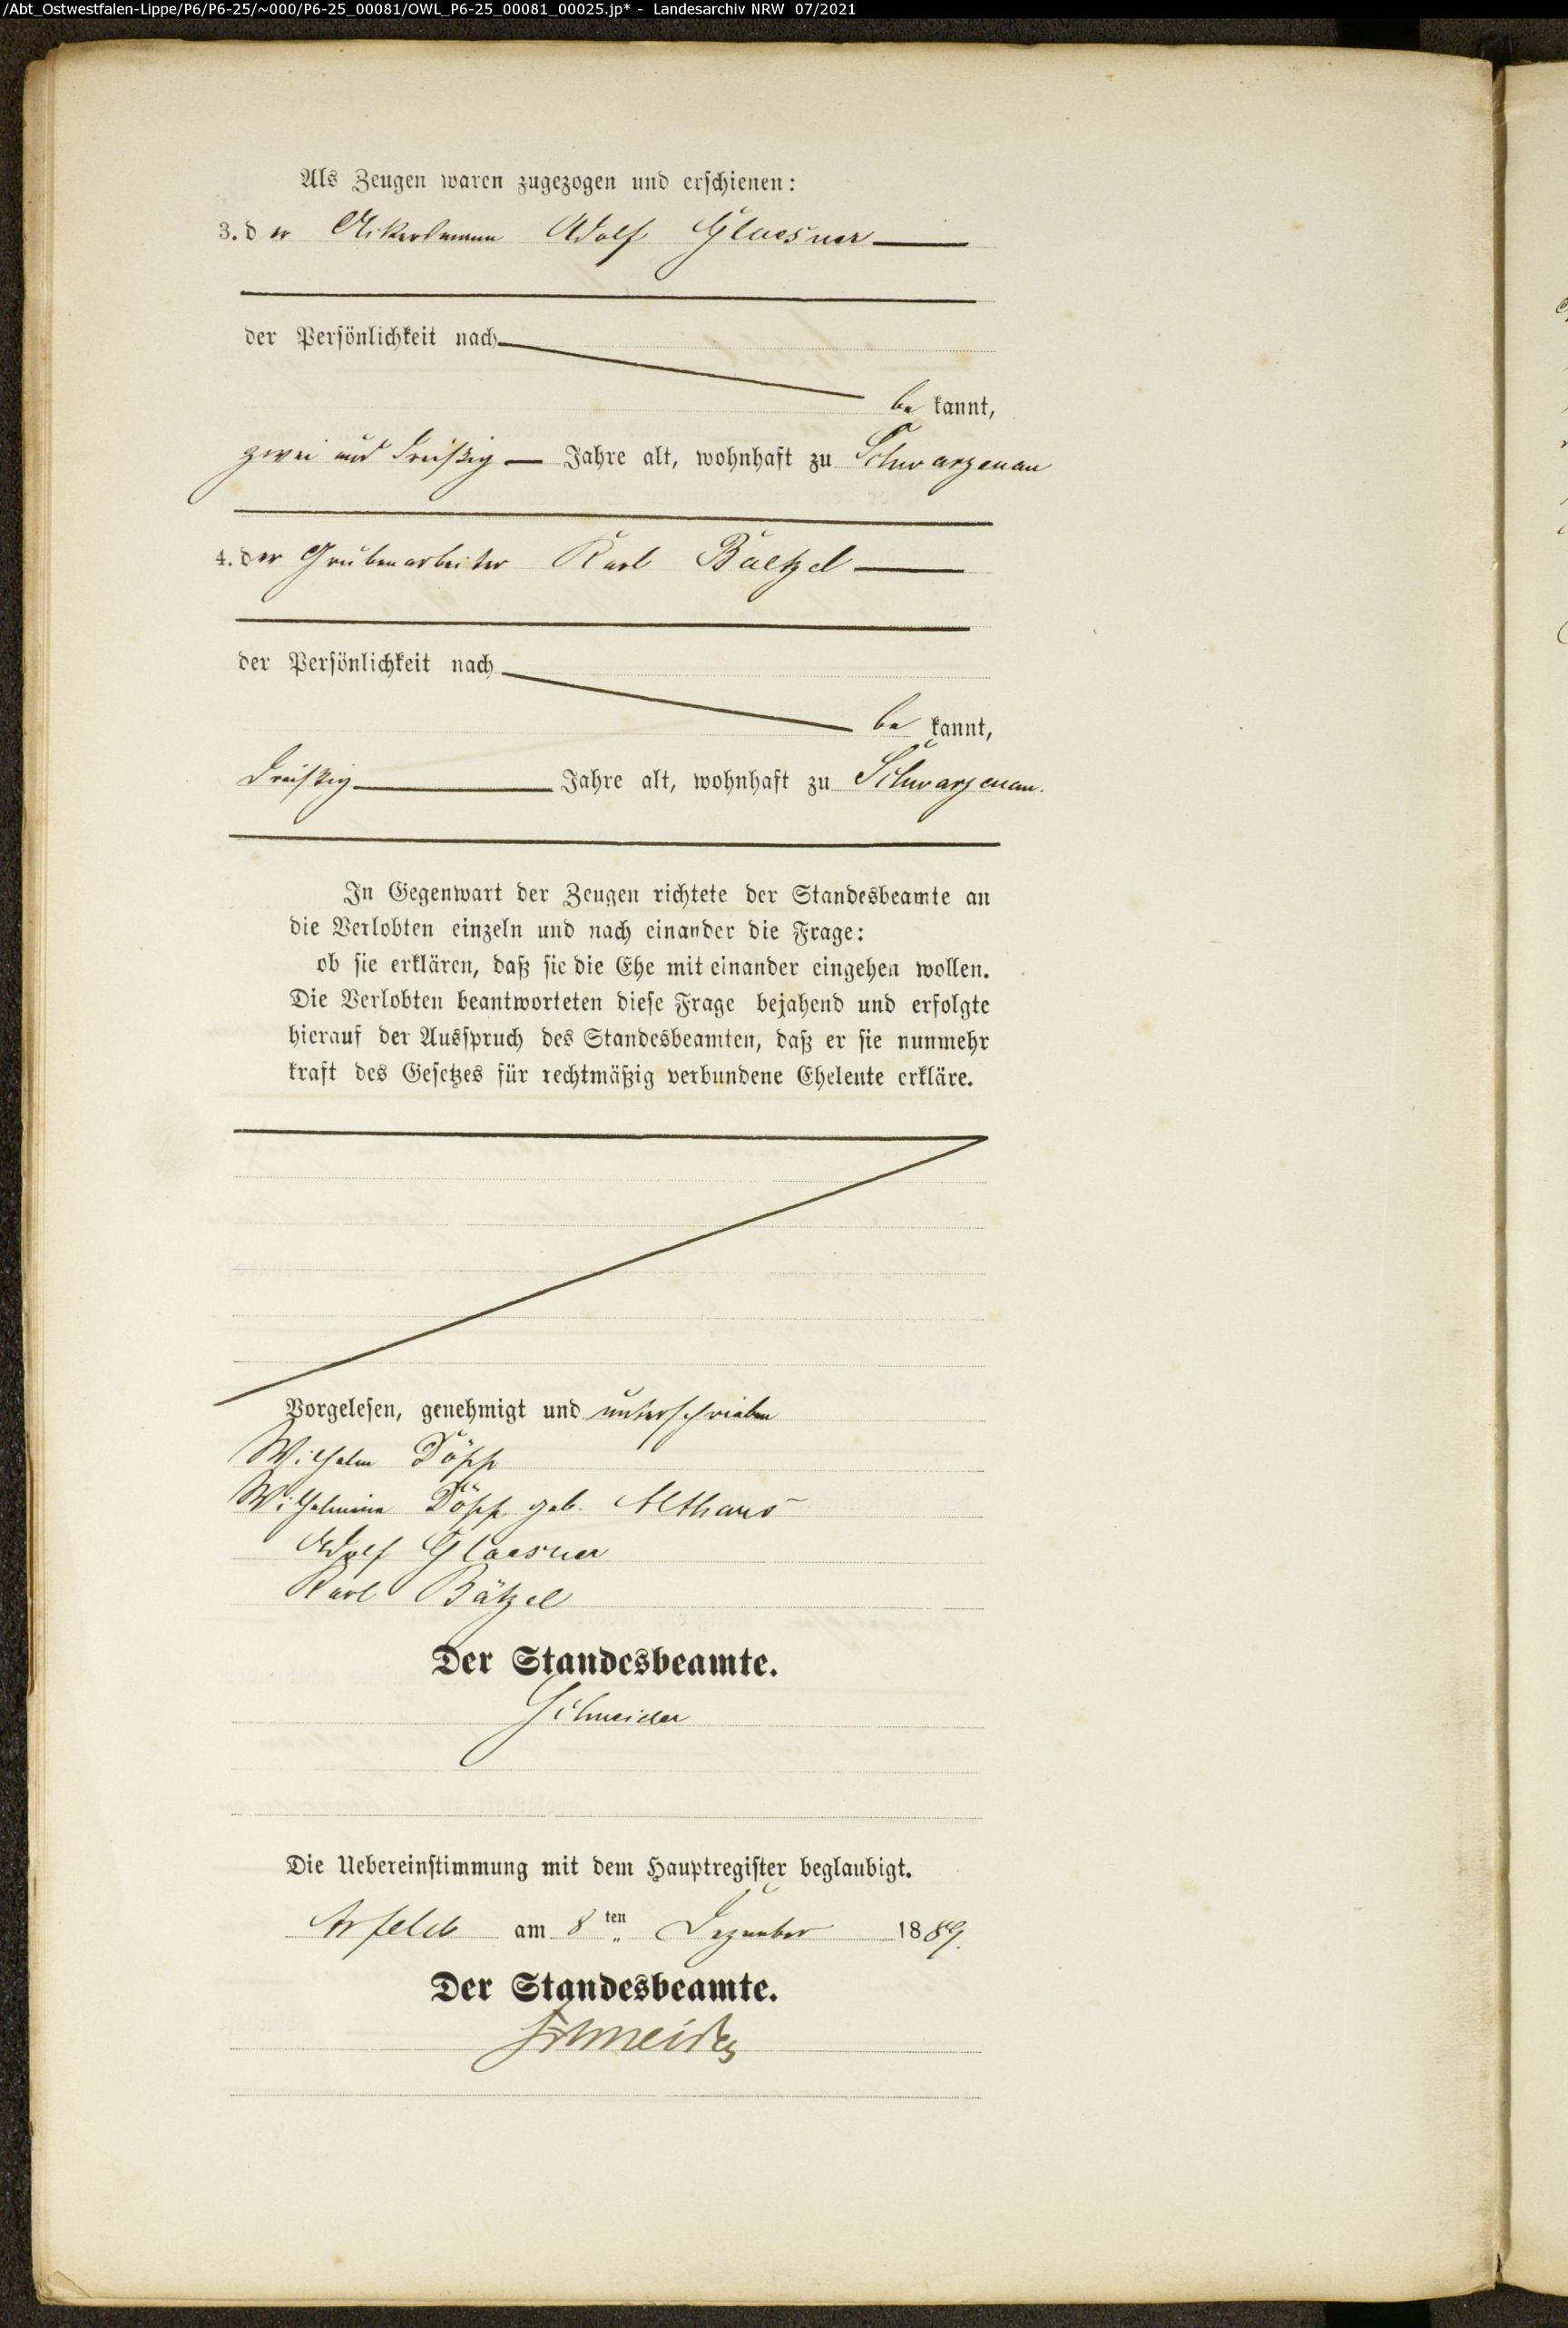 /Abt_Ostwestfalen-Lippe/P6/P6-25/~000/P6-25_00081/OWL_P6-25_00081_00025.jp* - Landesarchiv NRW 07/2021
Als Zeugen waren zugezogen und erschienen:
3. der Ackersmann Adolf Glaesner
der Persönlichkeit nach
be kannt,
zwei und dreißig Jahre alt, wohnhaft zu Schwarzenau
4. der Grubenarbeiter Karl Baetzel
der Persönlichkeit nach
be kannt,
dreißig Jahre alt, wohnhaft zu Schwarzenau.
In Gegenwart der Zeugen richtete der Standesbeamte an
die Verlobten einzeln und nach einander die Frage:
ob sie erklären, daß sie die Ehe mit einander eingehen wollen.
Die Verlobten beantworteten diese Frage bejahend und erfolgte
hierauf der Ausspruch des Standesbeamten, daß er sie nunmehr
kraft des Gesetzes für rechtmäßig verbundene Eheleute erkläre.
Vorgelesen, genehmigt und unterschrieben
Wilhelm Döpp
Wilhelmine Döpp geb. Althaus
Adolf Glaesner
Karl Bätzel
Der Standesbeamte.
Schneider
Die Uebereinstimmung mit dem Hauptregister beglaubigt.
Arfeld am 8ten Dezember 1889.
Der Standesbeamte.
Schneider